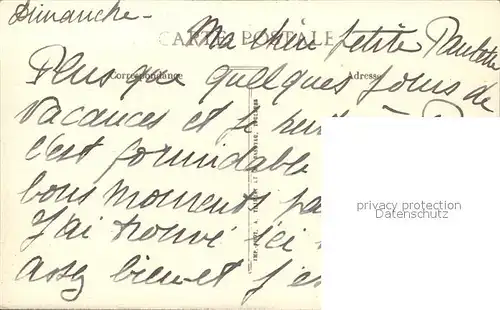 Dimanche -
CARTE POSTALE
Ma chère petite Paulette
Correspondance
Adresse
Plus que quelques jours de
vacances et je
c'est formidable
bons moments
J'ai trouvé ici
assez bien et j'e
privacy protection
Datenschutz